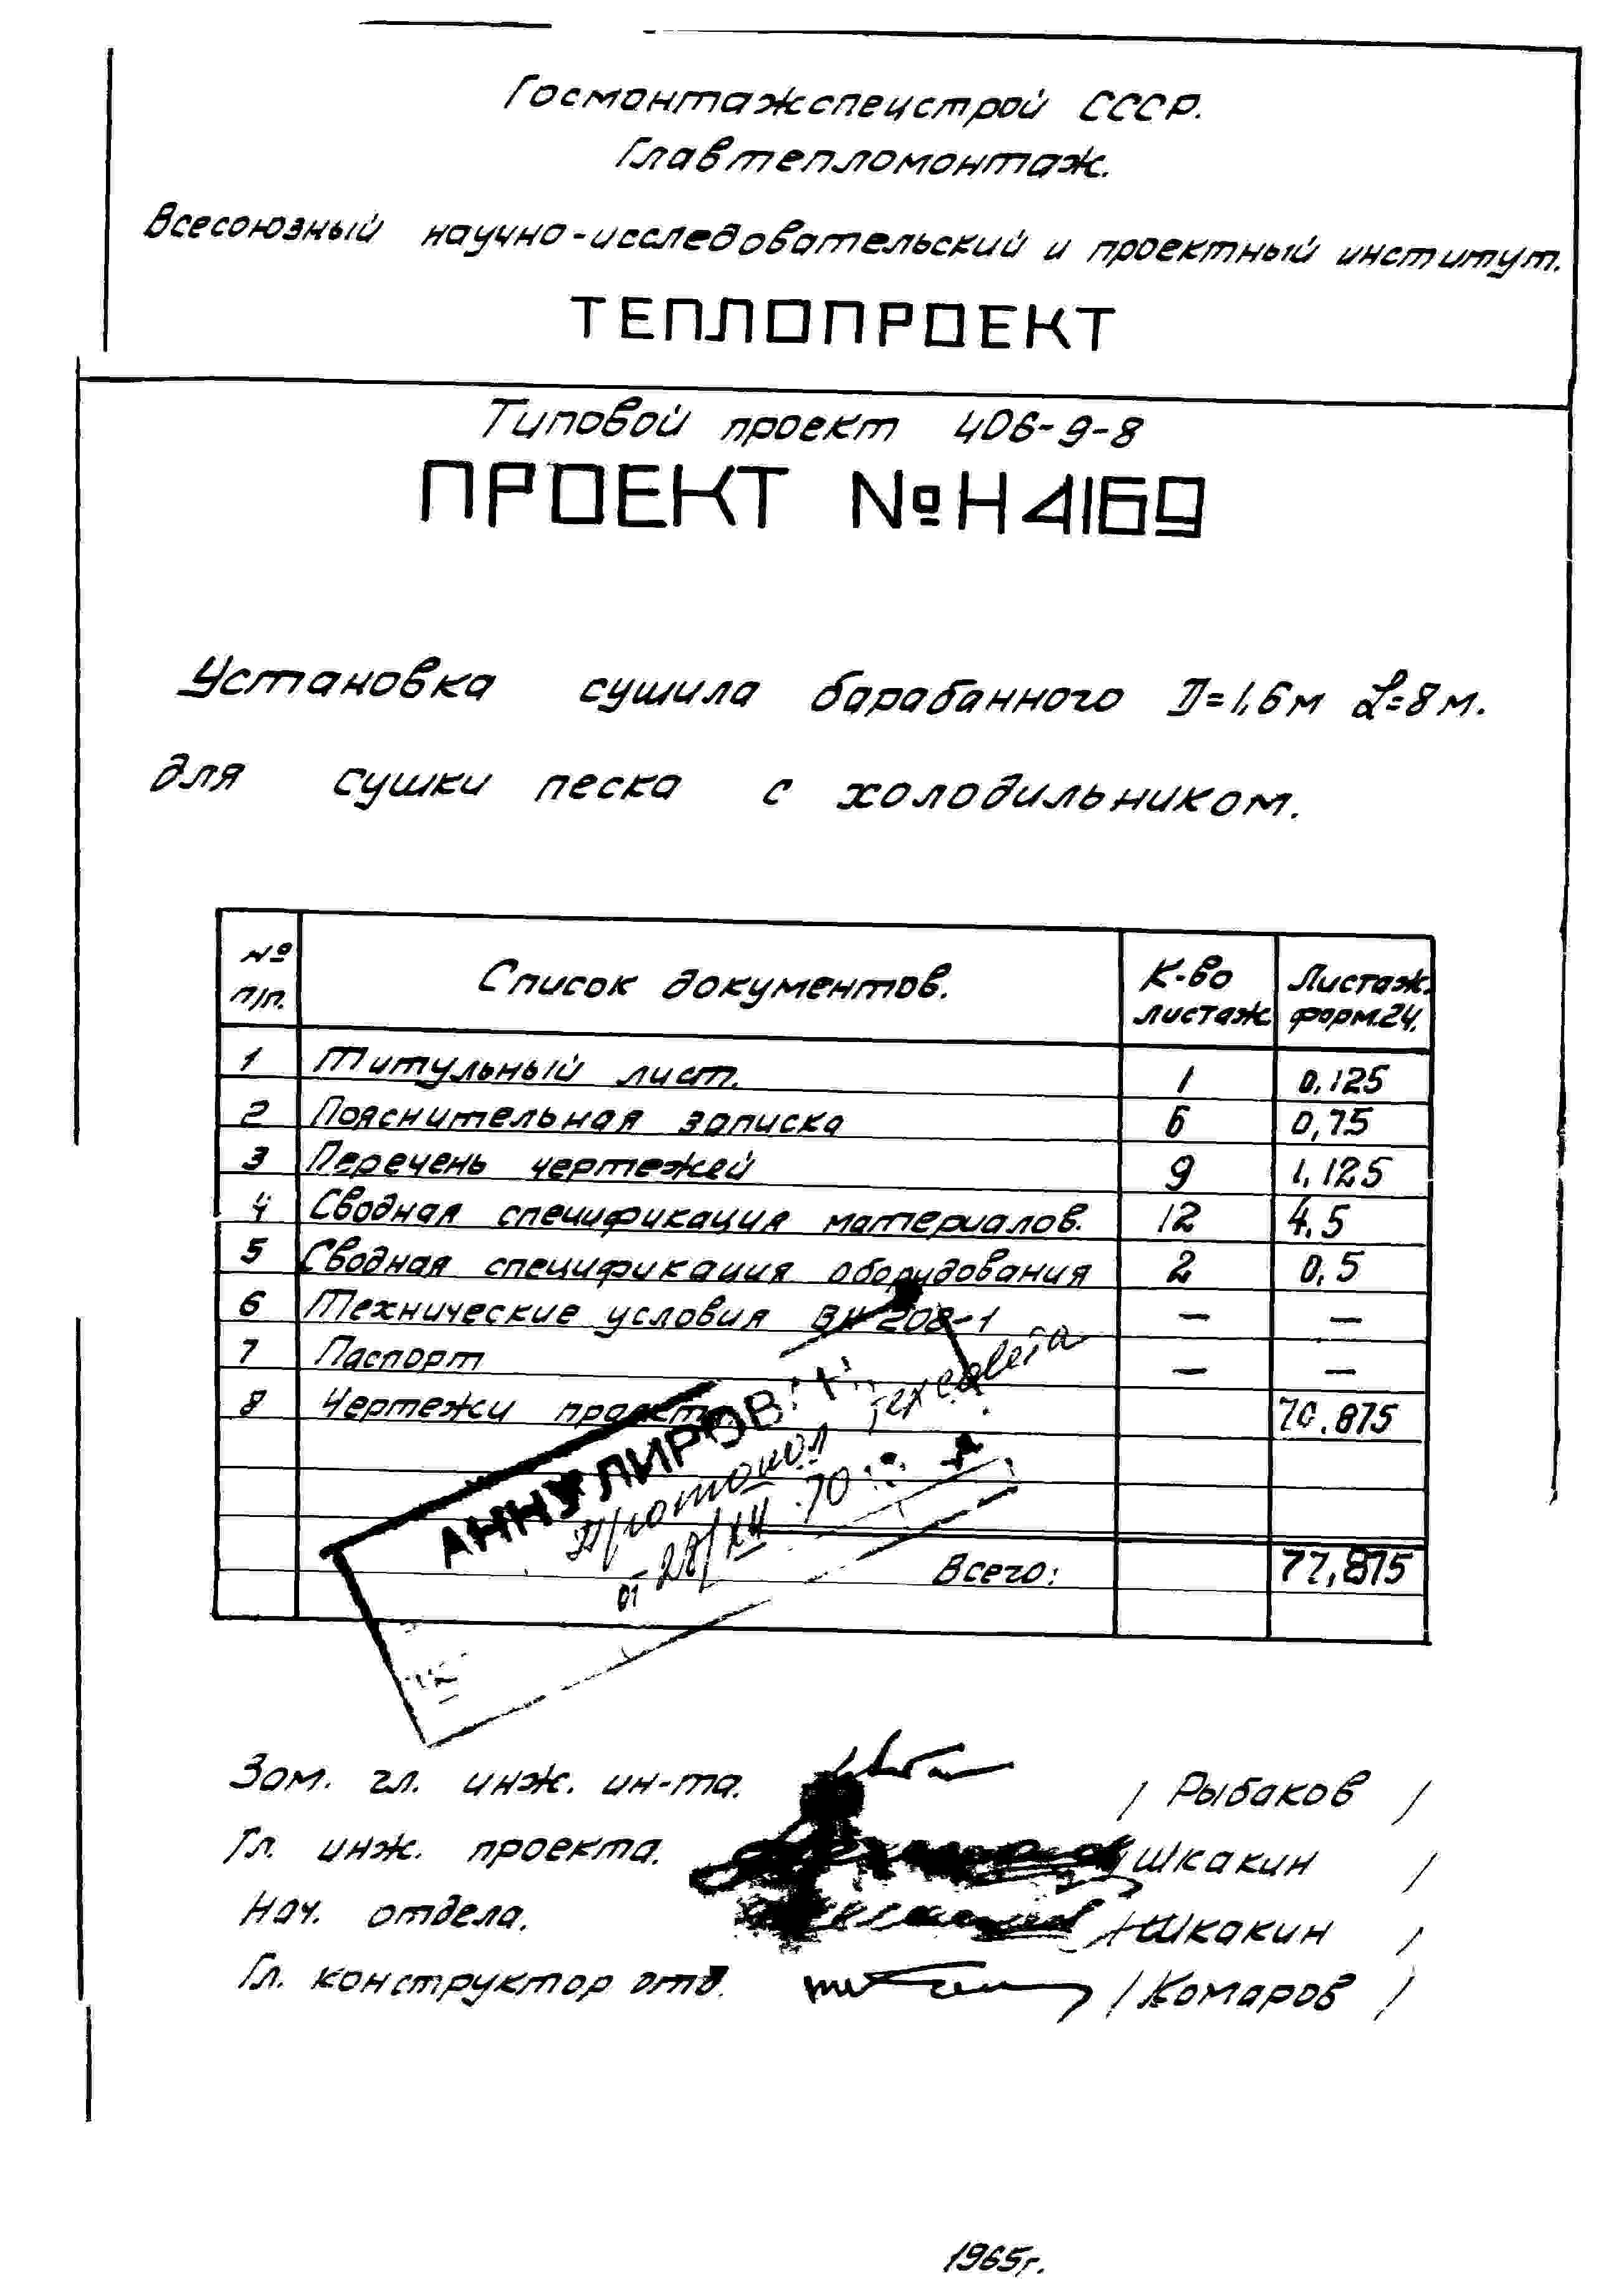 Госмонтажспецстрой СССР.
Главтепломонтаж.
Всесоюзный научно-исследовательский и проектный институт.
ТЕПЛОПРОЕКТ
Типовой проект 406-9-8
ПРОЕКТ № Н4169
Установка сушила барабанного D=1,6м L=8м.
для сушки песка с холодильником.
№ п/п. Список документов. К-во листаж. Листаж. форм.24.
1 Титульный лист. 1 0,125
2 Пояснительная записка 6 0,75
3 Перечень чертежей 9 1,125
4 Сводная спецификация материалов. 12 4,5
5 Сводная спецификация оборудования 2 0,5
6 Технические условия ВН 208-1 — —
7 Паспорт — —
8 Чертежи проект 70.875
Всего: 77,875
АННУЛИРОВ
Протокол Техсовета
от 28/XII 70
Зам. гл. инж. ин-та. / Рыбаков /
Гл. инж. проекта. Шкакин /
Нач. отдела. / Шкакин /
Гл. конструктор отд. / Комаров /
1965г.